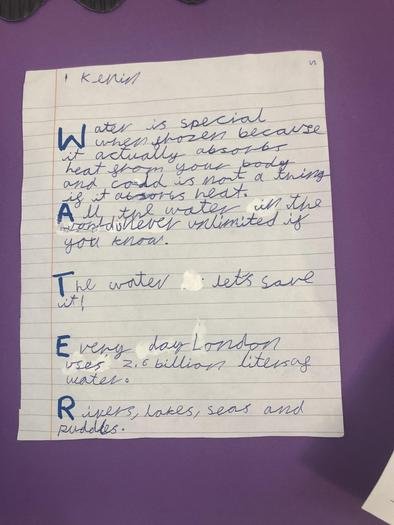 Kevin
Water is special
when frozen because
it actually absorbs
heat from your body
and codd is not a thing
if it absorbs heat.
All the water in the
never unlimited if
you know.
The water let's save
it!
Every day London
uses 2.6 billion liters of
water.
Rivers, lakes, seas and
puddles.